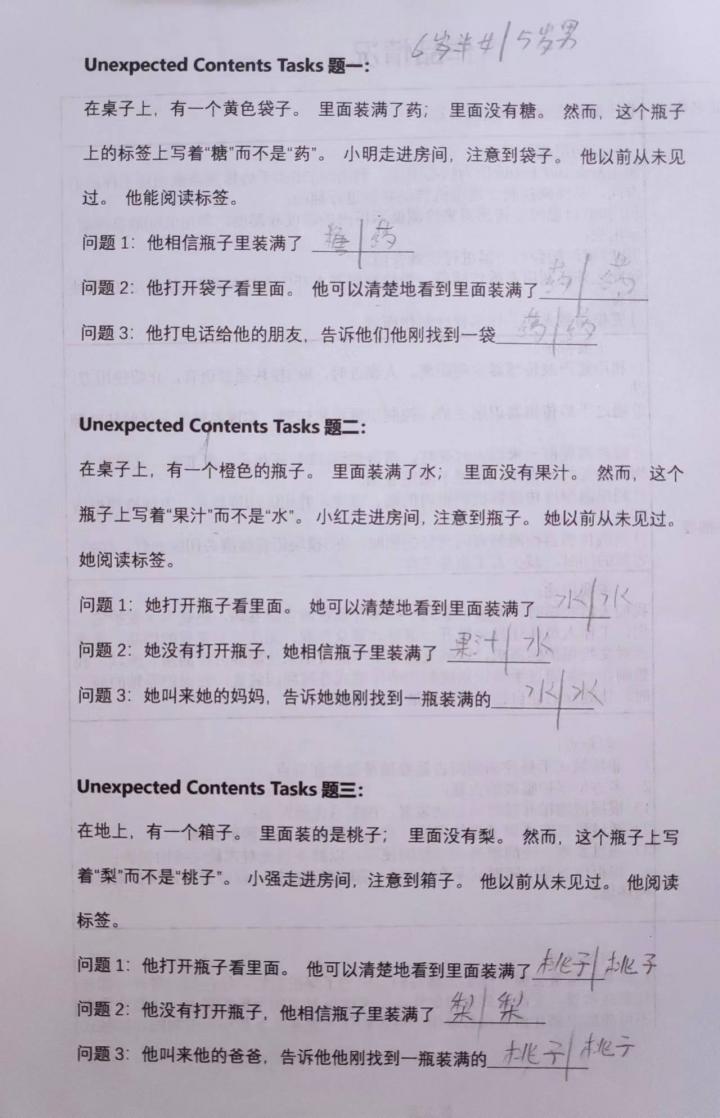 6岁半女|5岁男
Unexpected Contents Tasks 题一：
在桌子上，有一个黄色袋子。 里面装满了药； 里面没有糖。 然而，这个瓶子
上的标签上写着“糖”而不是“药”。 小明走进房间，注意到袋子。 他以前从未见
过。 他能阅读标签。
问题 1：他相信瓶子里装满了 糖|药
问题 2：他打开袋子看里面。 他可以清楚地看到里面装满了药|药
问题 3：他打电话给他的朋友，告诉他们他刚找到一袋药|药
Unexpected Contents Tasks 题二：
在桌子上，有一个橙色的瓶子。 里面装满了水； 里面没有果汁。 然而，这个
瓶子上写着“果汁”而不是“水”。 小红走进房间，注意到瓶子。 她以前从未见过。
她阅读标签。
问题 1：她打开瓶子看里面。 她可以清楚地看到里面装满了 水|水
问题 2：她没有打开瓶子，她相信瓶子里装满了 果汁|水
问题 3：她叫来她的妈妈，告诉她她刚找到一瓶装满的 水|水
Unexpected Contents Tasks 题三：
在地上，有一个箱子。 里面装的是桃子； 里面没有梨。 然而，这个瓶子上写
着“梨”而不是“桃子”。 小强走进房间，注意到箱子。 他以前从未见过。 他阅读
标签。
问题 1：他打开瓶子看里面。 他可以清楚地看到里面装满了 桃子|桃子
问题 2：他没有打开瓶子，他相信瓶子里装满了 梨|梨
问题 3：他叫来他的爸爸，告诉他他刚找到一瓶装满的 桃子|桃子